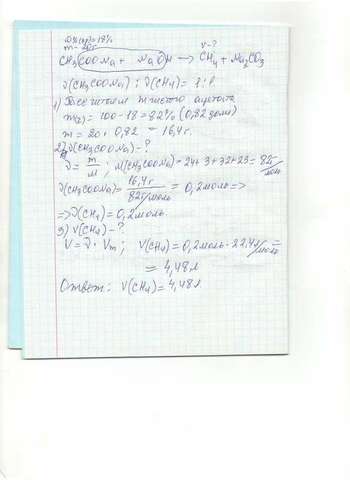 ω%(пр)=18%
m=20г V-?
CH₃COONa + NaOH → CH₄ + Na₂CO₃
ν(CH₃COONa) : ν(CH₄) = 1:1
1) Рассчитаем m чистого ацетата
= 100-18=82% (0,82 доли)
m = 20 · 0,82 = 16,4г
2) ν(CH₃COONa)-?
ν = m/M ; M(CH₃COONa)=24+3+32+23=82г/моль
ν(CH₃COONa)= 16,4г / 82г/моль = 0,2моль=>
=>ν(CH₄)=0,2моль
3) V(CH₄)-?
V=ν·Vm; V(CH₄)=0,2моль·22,4л/моль=
= 4,48л
Ответ: V(CH₄)=4,48л